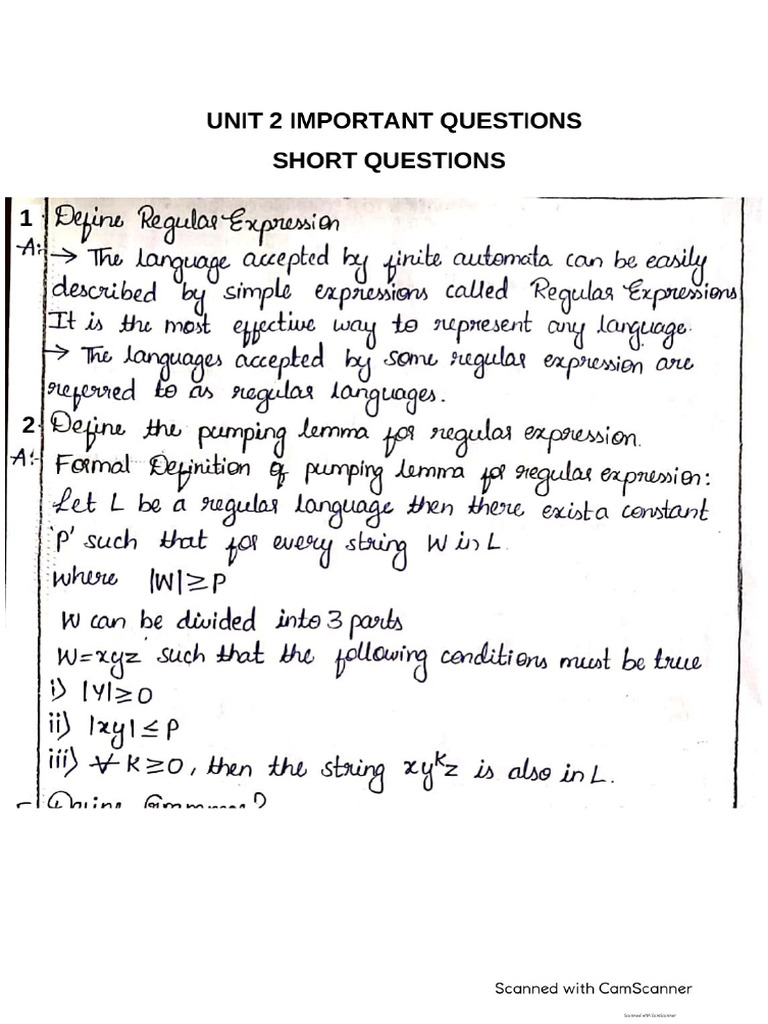 UNIT 2 IMPORTANT QUESTIONS
SHORT QUESTIONS
1 Define Regular Expression
A:- → The language accepted by finite automata can be easily
described by simple expressions called Regular Expressions
It is the most effective way to represent any language.
→ The languages accepted by some regular expression are
referred to as regular languages.
2. Define the pumping lemma for regular expression.
A:- Formal Definition of pumping lemma for regular expression:
Let L be a regular language then there exist a constant
'P' such that for every string W in L.
where |W|≥P
W can be divided into 3 parts
W=xyz such that the following conditions must be true
i) |Y|≥0
ii) |xy|≤P
iii) ∀ K≥0, then the string xyᵏz is also in L.
Scanned with CamScanner
Scanned with CamScanner